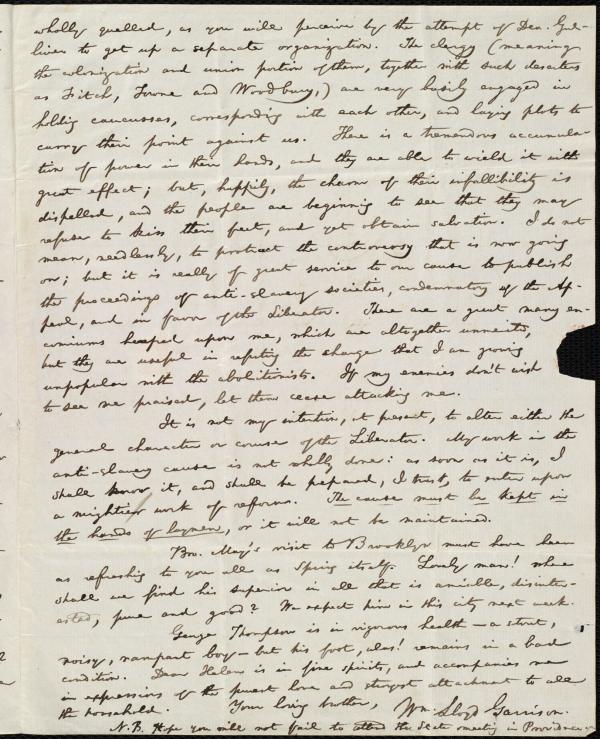 wholly quelled, as you will perceive by the attempt of Dea. Gul-
liver to get up a separate organization. The clergy (meaning
the colonization and union portion of them, together with such deserters
as Fitch, Towne and Woodbury,) are very busily engaged in
holding caucusses, corresponding with each other, and laying plots to
carry their point against us. Here is a tremendous accumula-
tion of power in their hands, and they are able to wield it with
great effect; but, happily, the charm of their infallibility is
dispelled, and the people are beginning to see that they may
refuse to kiss their feet, and yet obtain salvation. I do not
mean, needlessly, to protract the controversy that is now going
on; but it is really of great service to our cause to publish
the proceedings of anti-slavery societies, condemnatory of the Ap-
peal, and in favor of the Liberator. There are a great many en-
comiums heaped upon me, which are altogether unmerited,
but they are useful in refuting the charge that I am growing
unpopular with the abolitionists. If my enemies don't wish
to see me praised, let them cease attacking me.
It is not my intention, at present, to alter either the
general character or course of the Liberator. My work in the
anti-slavery cause is not wholly done: as soon as it is, I
shall know it, and shall be prepared, I trust, to enter upon
a mightier work of reform. The cause must be kept in
the hands of laymen, or it will not be maintained.
Bro. May's visit to Brooklyn must have been
as refreshing to you all as Spring itself. Lovely man! where
shall we find his superior in all that is amiable, disinter-
ested, pure and good? We expect him in this city next week.
George Thompson is in vigorous health—a stout,
noisy, rampant boy—but his foot, alas! remains in a bad
condition. Dear Helen is in fine spirits, and accompanies me
in expressions of the purest love and strongest attachment to all
the household. Your loving brother, Wm. Lloyd Garrison.
N. B. Hope you will not fail to attend the State meeting in Providence.